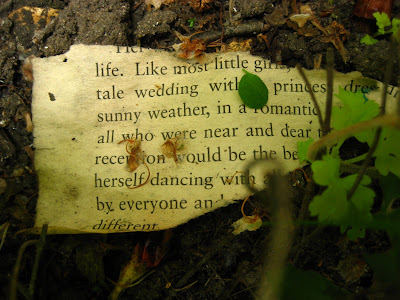 life. Like most little girls,
tale wedding with princess dress
sunny weather, in a romantic
all who were near and dear t
reception would be the be
herself dancing with
by everyone and
different